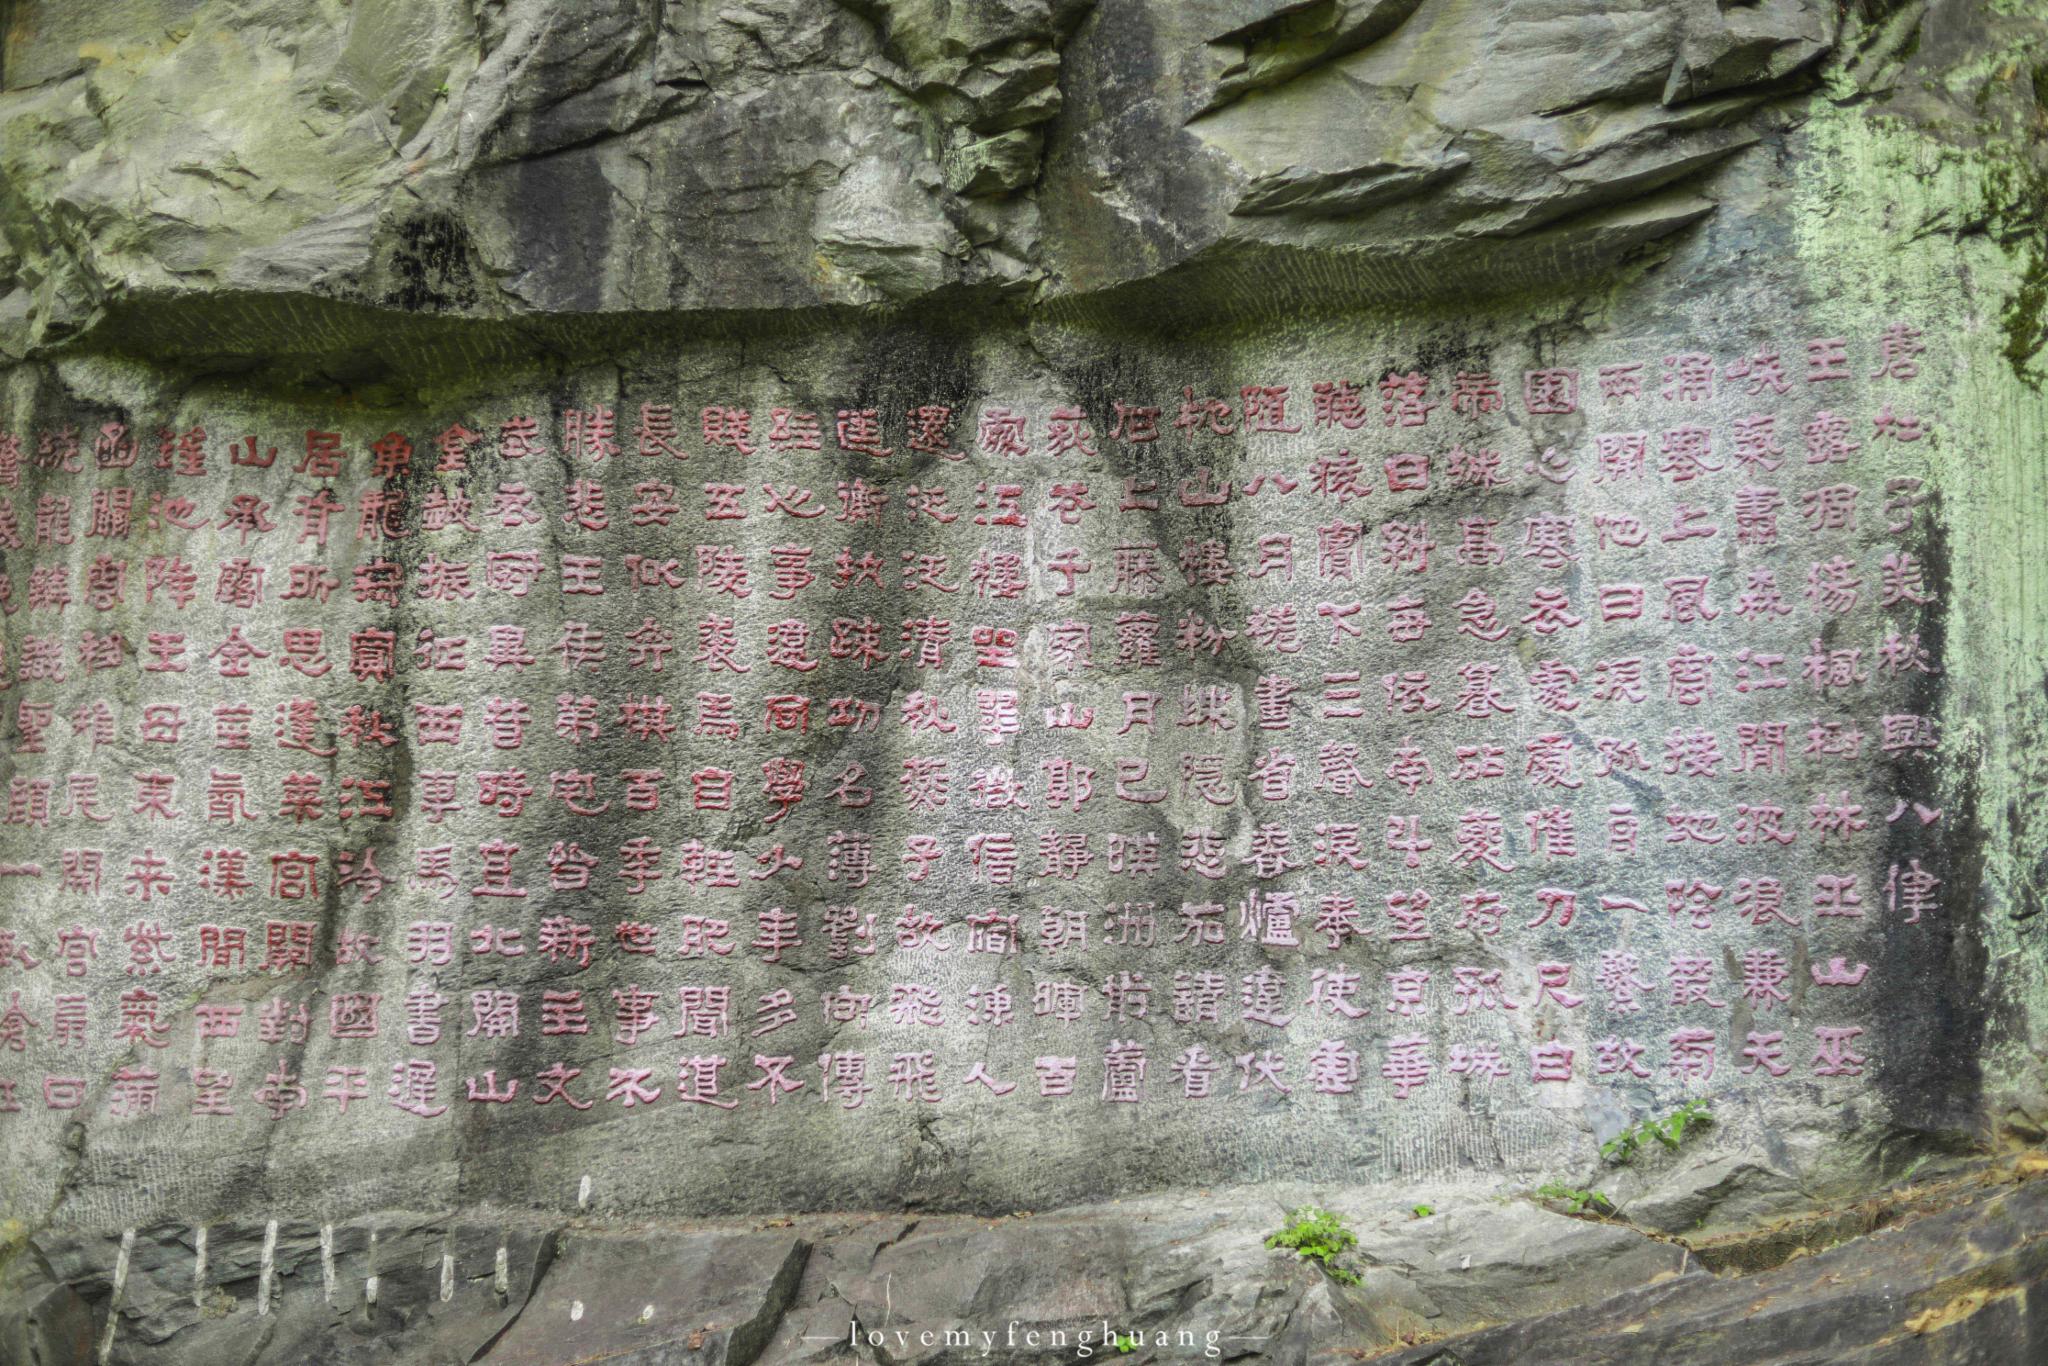 唐杜子美秋興八律
玉露凋傷楓樹林巫山巫
峡氣蕭森江間波浪兼天
涌塞上風雲接地陰叢菊
兩開他日淚孤舟一繫故
園心寒衣處處催刀尺白
帝城高急暮砧夔府孤城
落日斜每依南斗望京華
聽猿實下三聲淚奉使虛
隨八月槎畫省香爐違伏
枕山樓粉堞隱悲笳請看
石上藤蘿月已暎洲前蘆
荻花千家山郭靜朝暉百
處江樓坐翠微信宿漁人
還泛泛清秋燕子故飛飛
匡衡抗疏功名薄劉向傳
經心事違同學少年多不
賤五陵裘馬自輕肥聞道
長安似弈棋百年世事不
勝悲王侯第宅皆新主文
武衣冠異昔時直北關山
金鼓振征西車馬羽書遲
魚龍寂寞秋江冷故國平
居有所思蓬萊宮闕對南
山承露金莖霄漢間西望
瑤池降王母東來紫氣滿
函關雲移雉尾開宮扇日
繞龍鱗識聖顏一臥滄江
驚歲晚
lovemyfenghuang